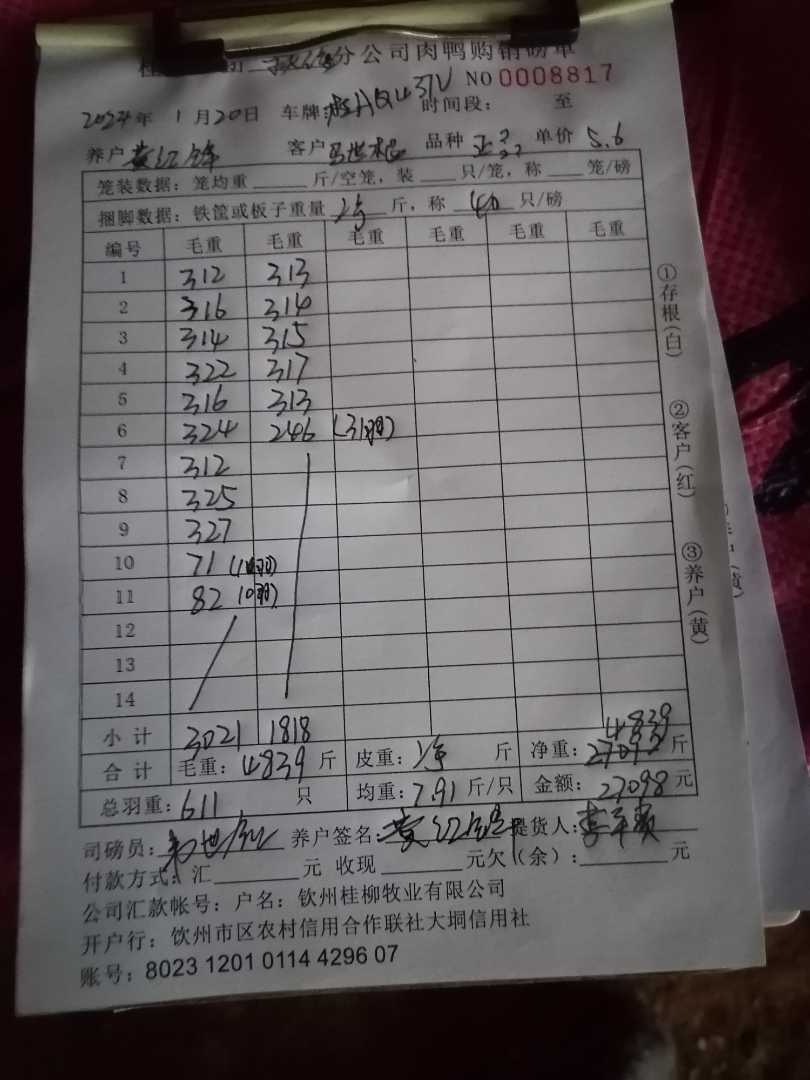 分公司肉鸭购销磅单
NO 0008817
2024年 1月20日 车牌: 时间段: 至
养户 黄红锋 客户 马世根 品种 单价 5.6
笼装数据: 笼均重 斤/空笼, 装 只/笼, 称 笼/磅
捆脚数据: 铁筐或板子重量 斤, 称 40 只/磅
编号 毛重 毛重 毛重 毛重 毛重 毛重
1 312 313
2 316 314
3 314 315
4 322 317
5 316 313
6 324 246 (31羽)
7 312
8 325
9 327
10 71
11 82 10羽)
12
13
14
小计 3021 1818 4839
合计 毛重: 4839 斤 皮重: 斤 净重: 斤
总羽重: 611 只 均重: 7.91 斤/只 金额: 27098 元
司磅员: 养户签名: 黄红锋 提货人:
付款方式: 汇 元 收现 元欠(余): 元
公司汇款帐号: 户名: 钦州桂柳牧业有限公司
开户行: 钦州市区农村信用合作联社大垌信用社
账号: 8023 1201 0114 4296 07
①存根(白)
②客户(红)
③养户(黄)